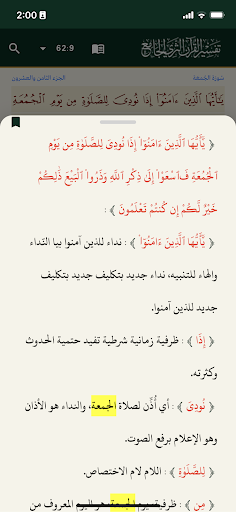 2:00
تفسير القرآن الثري الجامع
62:9
سورة الجمعة الجزء الثامن والعشرون
يَٰٓأَيُّهَا ٱلَّذِينَ ءَامَنُوٓا۟ إِذَا نُودِىَ لِلصَّلَوٰةِ مِن يَوْمِ ٱلْجُمُعَةِ
﴿ يَٰٓأَيُّهَا ٱلَّذِينَ ءَامَنُوٓا۟ إِذَا نُودِىَ لِلصَّلَوٰةِ مِن يَوْمِ
ٱلْجُمُعَةِ فَٱسْعَوْا۟ إِلَىٰ ذِكْرِ ٱللَّهِ وَذَرُوا۟ ٱلْبَيْعَ ذَٰلِكُمْ
خَيْرٌ لَّكُمْ إِن كُنتُمْ تَعْلَمُونَ ﴾ :
﴿ يَٰٓأَيُّهَا ٱلَّذِينَ ءَامَنُوٓا۟ ﴾ : نداء للذين آمنوا بيا النّداء
والهاء للتنبيه، نداء جديد بتكليف جديد بتكليف
جديد للذين آمنوا.
﴿ إِذَا ﴾ : ظرفية زمانية شرطية تفيد حتمية الحدوث
وكثرته.
﴿ نُودِىَ ﴾ : أي أُذِّن لصلاة الجمعة، والنداء هو الأذان
وهو الإعلام برفع الصوت.
﴿ لِلصَّلَوٰةِ ﴾ : اللام لام الاختصاص.
﴿ مِن ﴾ : ظرفية يوم الجمعة هو اليوم المعروف من